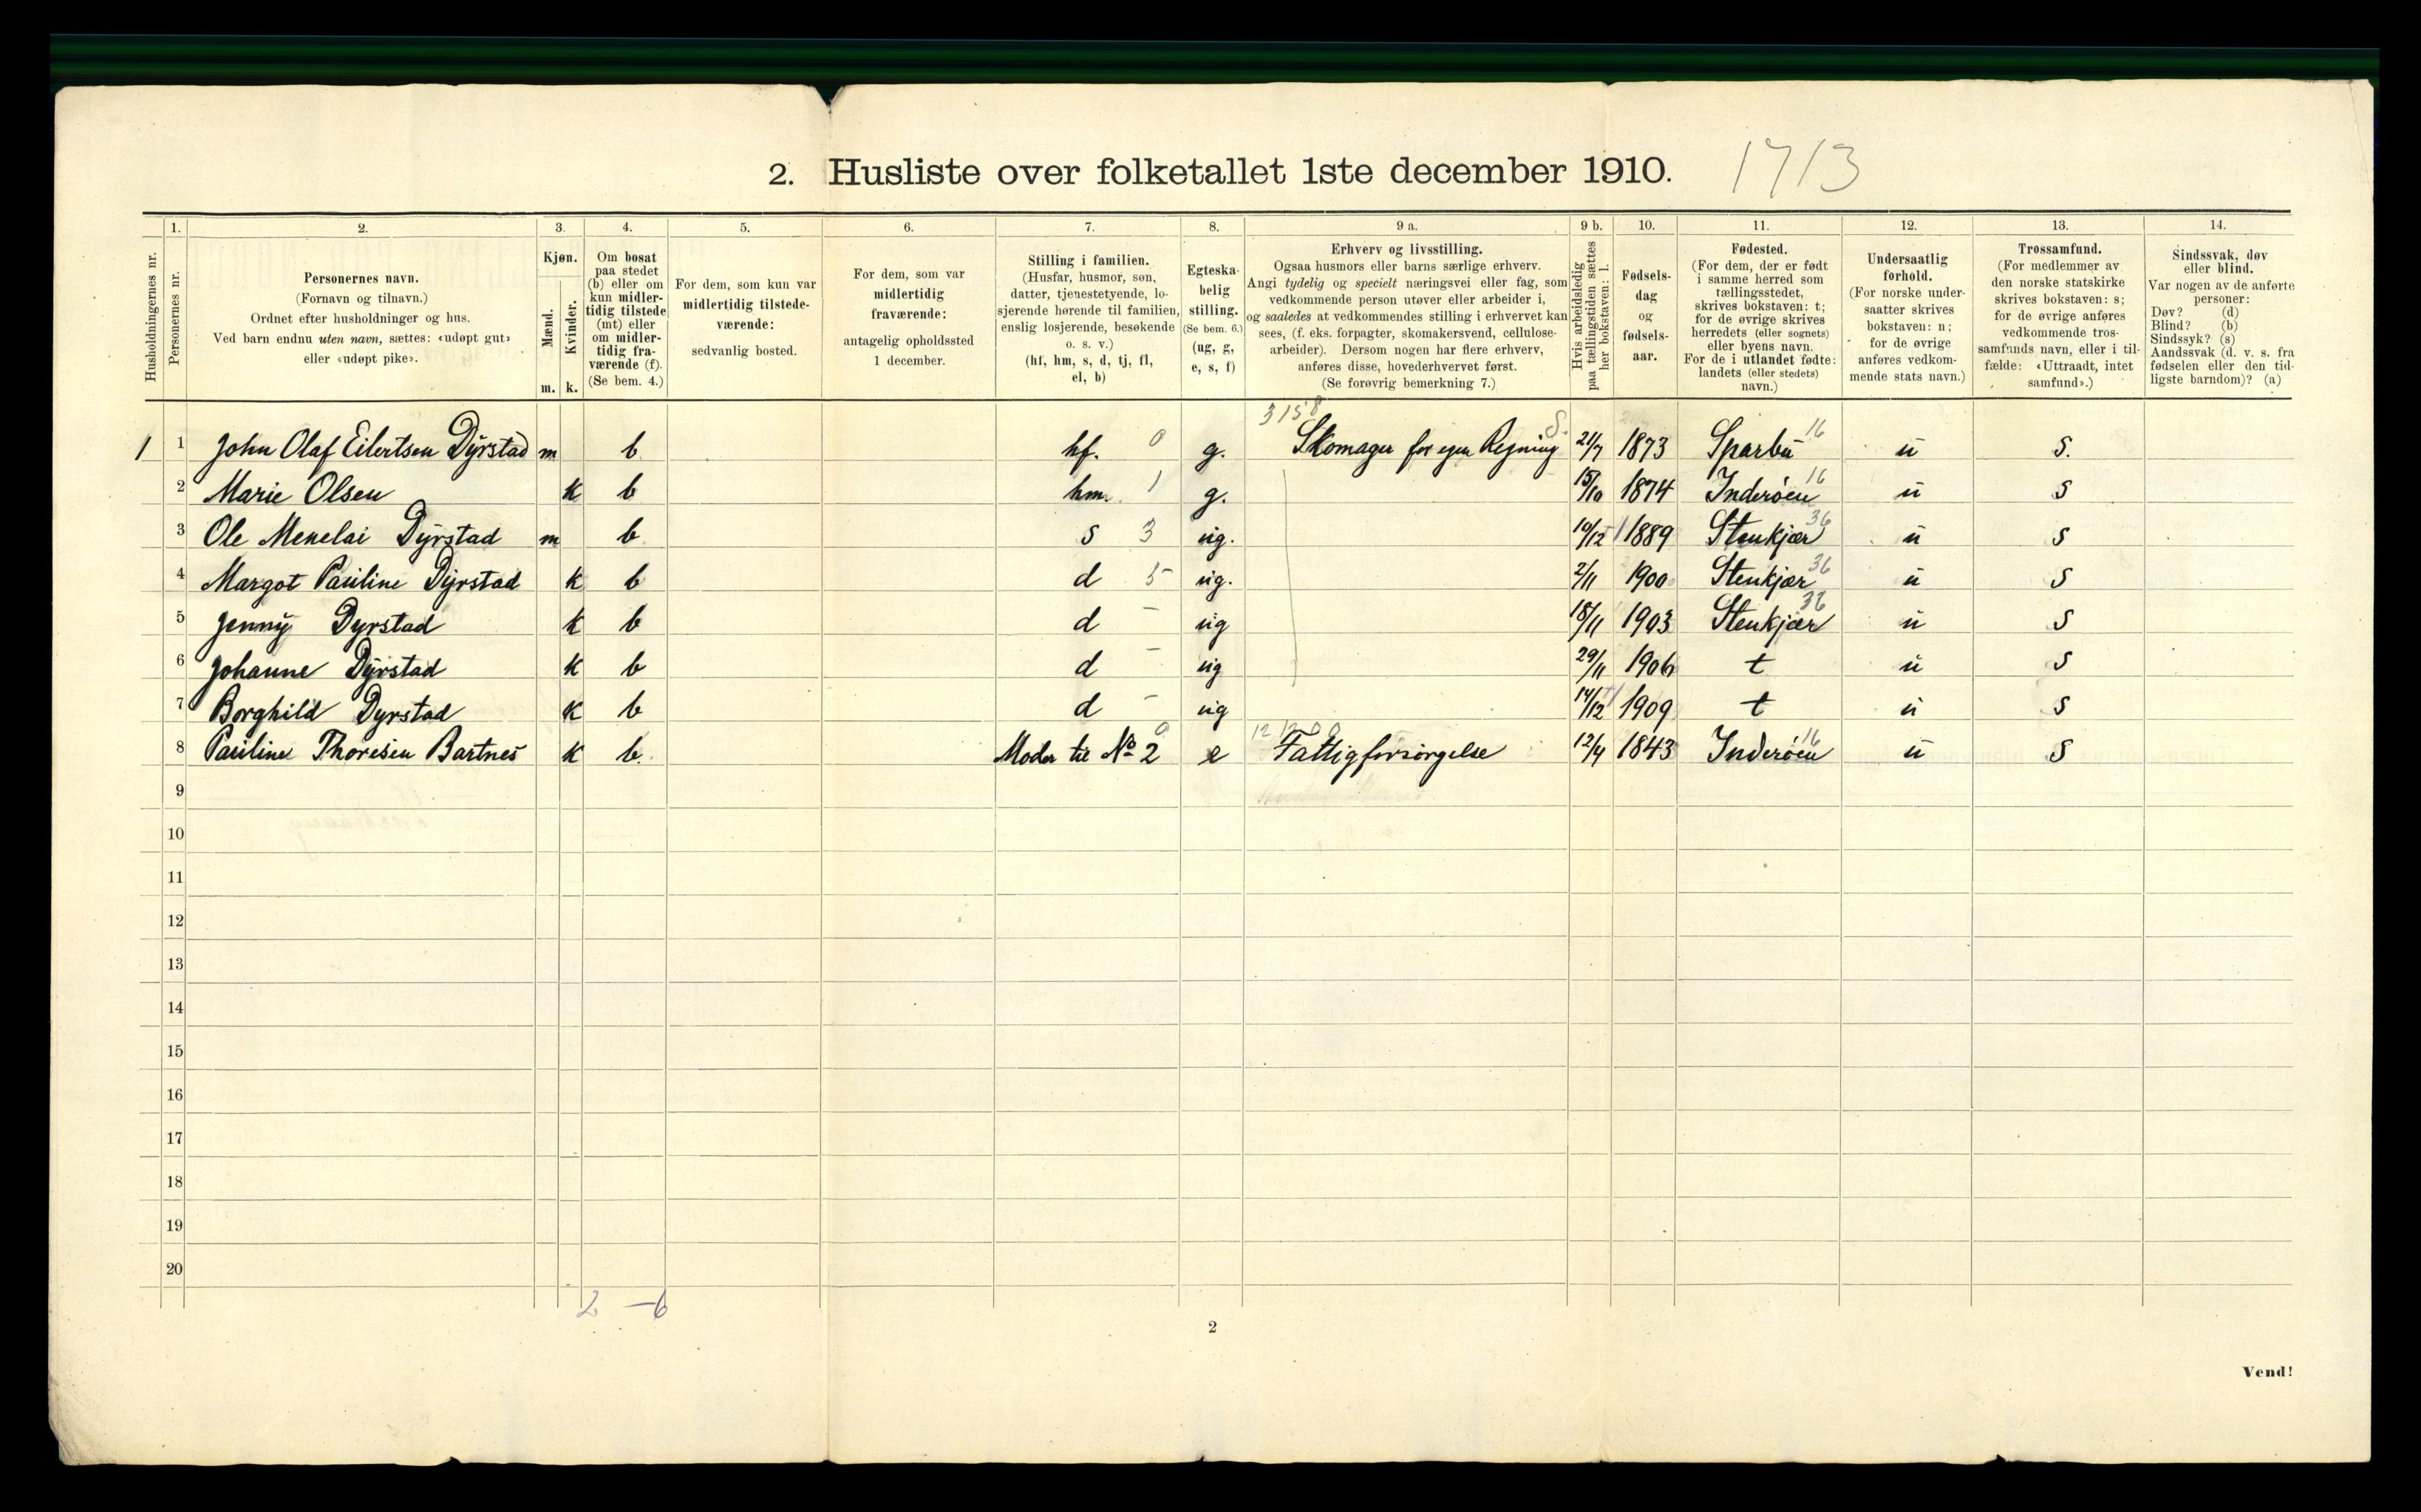 2. Husliste over folketallet 1ste december 1910. 1713
1. 2. 3. 4. 5. 6. 7. 8. 9 a. 9 b. 10. 11. 12. 13. 14.
Husholdningernes nr.
Personernes nr.
Personernes navn.
(Fornavn og tilnavn.)
Ordnet efter husholdninger og hus.
Ved barn endnu uten navn, sættes: «udøpt gut»
eller «udøpt pike».
Kjøn.
Mænd.
Kvinder.
m. k.
Om bosat
paa stedet
(b) eller om
kun midler-
tidig tilstede
(mt) eller
om midler-
tidig fra-
værende (f).
(Se bem. 4.)
For dem, som kun var
midlertidig tilstede-
værende:
sedvanlig bosted.
For dem, som var
midlertidig
fraværende:
antagelig opholdssted
1 december.
Stilling i familien.
(Husfar, husmor, søn,
datter, tjenestetyende, lo-
sjerende hørende til familien,
enslig losjerende, besøkende
o. s. v.)
(hf, hm, s, d, tj, fl,
el, b)
Egteska-
belig
stilling.
(Se bem. 6.)
(ug, g,
e, s, f)
Erhverv og livsstilling.
Ogsaa husmors eller barns særlige erhverv.
Angi tydelig og specielt næringsvei eller fag, som
vedkommende person utøver eller arbeider i,
og saaledes at vedkommendes stilling i erhvervet kan
sees, (f. eks. forpagter, skomakersvend, cellulose-
arbeider). Dersom nogen har flere erhverv,
anføres disse, hovederhvervet først.
(Se forøvrig bemerkning 7.)
Hvis arbeidsledig
paa tællingstiden sættes
her bokstaven: l.
Fødsels-
dag
og
fødsels-
aar.
Fødested.
(For dem, der er født
i samme herred som
tællingsstedet,
skrives bokstaven: t;
for de øvrige skrives
herredets (eller sognets)
eller byens navn.
For de i utlandet fødte:
landets (eller stedets)
navn.)
Undersaatlig
forhold.
(For norske under-
saatter skrives
bokstaven: n;
for de øvrige
anføres vedkom-
mende stats navn.)
Trossamfund.
(For medlemmer av
den norske statskirke
skrives bokstaven: s;
for de øvrige anføres
vedkommende tros-
samfunds navn, eller i til-
fælde: «Uttraadt, intet
samfund».)
Sindssvak, døv
eller blind.
Var nogen av de anførte
personer:
Døv? (d)
Blind? (b)
Sindssyk? (s)
Aandssvak (d. v. s. fra
fødselen eller den tid-
ligste barndom)? (a)
3158
1 1 John Olaf Eilertsen Dyrstad m b hf. 0 g. Skomager for egen Regning S. 21/7 1873 Sparbu 16 u s.
2 Marie Olsen k b hm. 1 g. 15/10 1874 Inderøen 16 u s
3 Ole Menelai Dyrstad m b s 3 ug. 19/12 1889 Stenkjær 36 u s
4 Margot Pauline Dyrstad k b d 5 ug. 2/11 1900 Stenkjær 36 u s
5 Jenny Dyrstad k b d - ug 18/11 1903 Stenkjær 36 u s
6 Johanne Dyrstad k b d - ug 29/11 1906 t u s
7 Borghild Dyrstad k b d - ug 14/12 1909 t u s
8 Pauline Thoresen Bartnes k b. Moder til No 2 0 e Fattigforsørgelse 12/4 1843 Inderøen 16 u s
9
10
11
12
13
14
15
16
17
18
19
20
2 - 6
2
Vend!